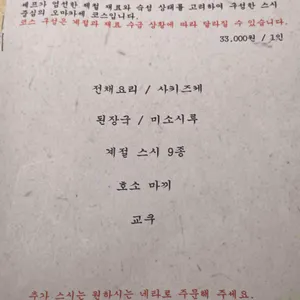 셰프가 엄선한 제철 재료와 숙성 상태를 고려하여 구성한 스시
중심의 오마카세 코스입니다.
코스 구성은 계절과 재료 수급 상황에 따라 달라질 수 있습니다.
33.000원 / 1인
전채요리 / 사키즈케
된장국 / 미소시루
계절 스시 9종
호소 마끼
교쿠
추가 스시는 원하시는 네타로 주문해 주세요.